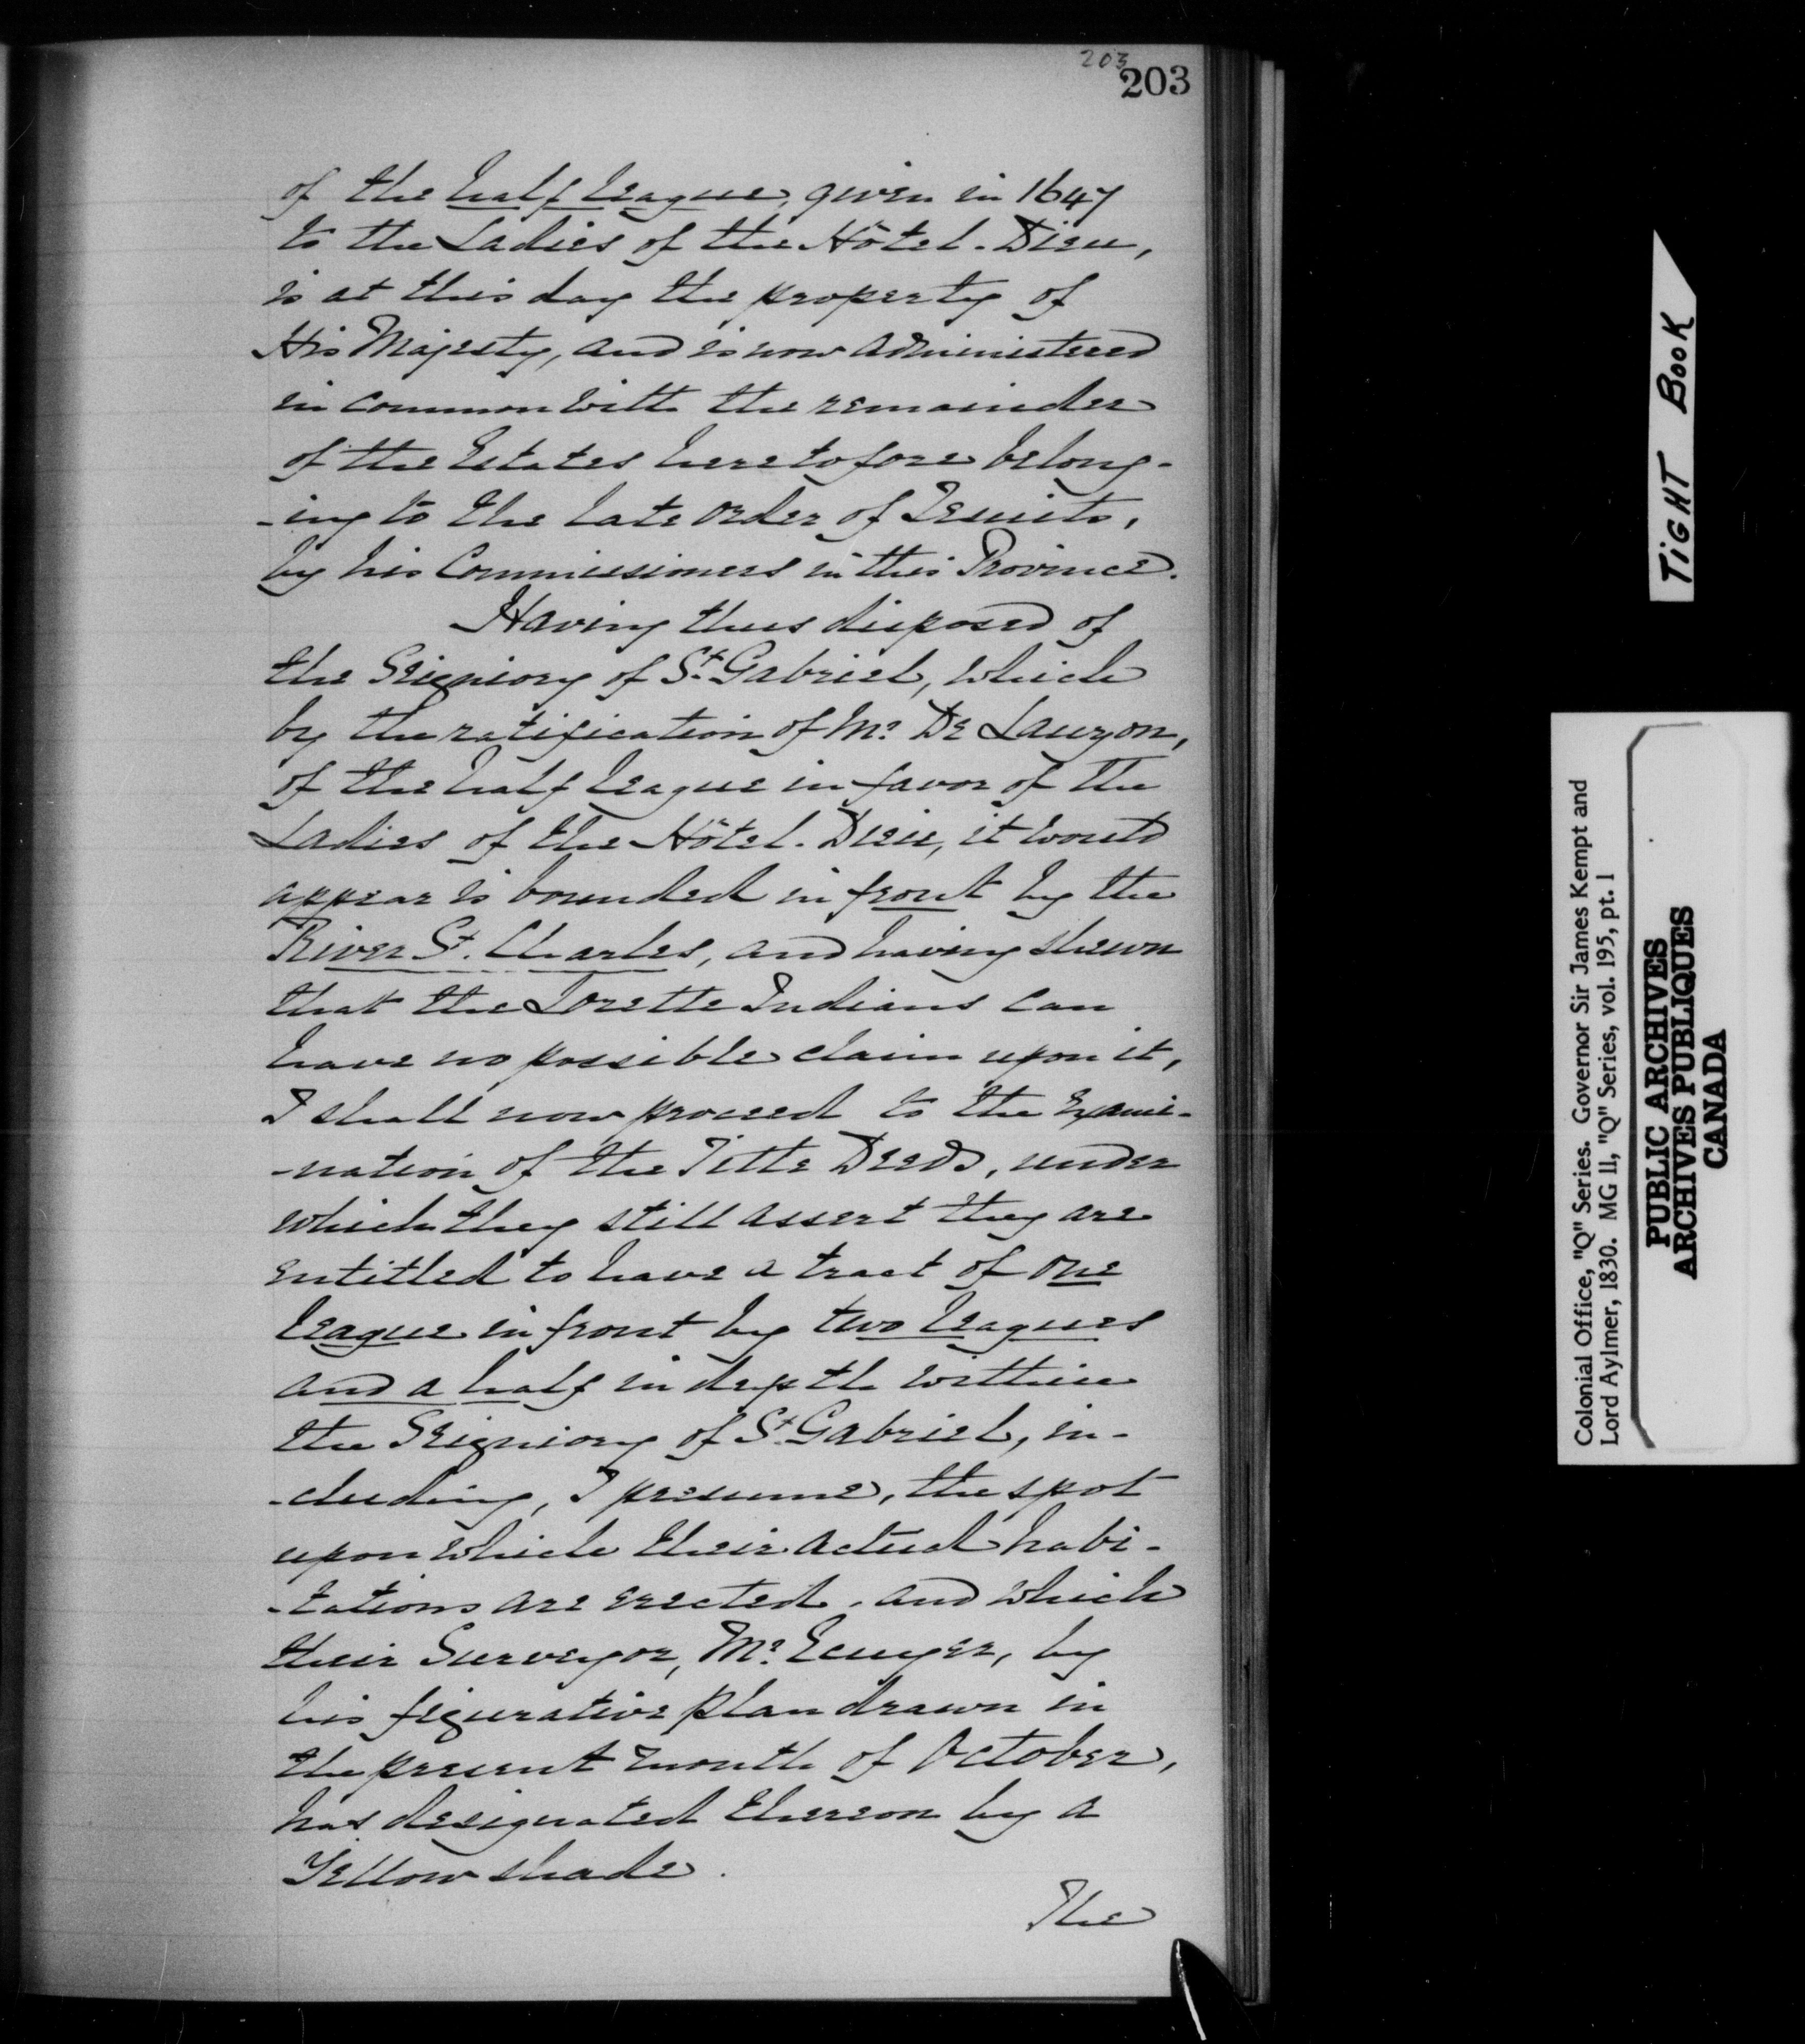 203
203
of the half league, given in 1647
to the Ladies of the Hôtel-Dieu,
is at this day the property of
His Majesty, and is now administered
in common with the remainder
of the Estates heretofore belong-
-ing to the late order of Jesuits,
by his Commissioners in this Province.
Having thus disposed of
the Seigniory of St. Gabriel, which
by the ratification of Mr. De Lauzon,
of the half league in favor of the
Ladies of the Hôtel-Dieu, it would
appear is bounded in front by the
River St. Charles, and having shewn
that the Lorette Indians can
have no possible claim upon it,
I shall now proceed to the Exami-
-nation of the Title Deeds, under
which they still assert they are
entitled to have a tract of one
league in front by two leagues
and a half in depth within
the Seigniory of St. Gabriel, in-
-cluding, I presume, the spot
upon which their actual habi-
-tations are erected, and which
their Surveyor, Mr. Ecuyer, by
his figurative plan drawn in
the present month of October,
has designated thereon by a
Yellow shade.
The
TIGHT BOOK
Colonial Office, "Q" Series. Governor Sir James Kempt and
Lord Aylmer, 1830. MG 11, "Q" Series, vol. 195, pt. 1
PUBLIC ARCHIVES
ARCHIVES PUBLIQUES
CANADA